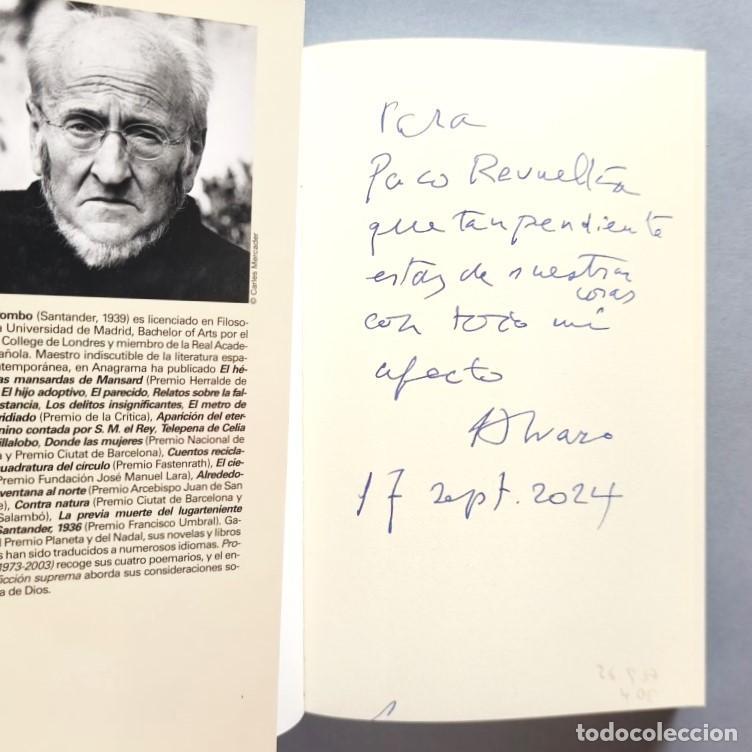 © Carles Mercader
ombo (Santander, 1939) es licenciado en Filoso-
a Universidad de Madrid, Bachelor of Arts por el
College de Londres y miembro de la Real Acade-
añola. Maestro indiscutible de la literatura espa-
ntemporánea, en Anagrama ha publicado El hé-
as mansardas de Mansard (Premio Herralde de
El hijo adoptivo, El parecido, Relatos sobre la fal-
stancia, Los delitos insignificantes, El metro de
ridiado (Premio de la Crítica), Aparición del eter-
nino contada por S. M. el Rey, Telepena de Celia
illalobo, Donde las mujeres (Premio Nacional de
a y Premio Ciutat de Barcelona), Cuentos recicla-
uadratura del círculo (Premio Fastenrath), El cie-
Premio Fundación José Manuel Lara), Alrededo-
ventana al norte (Premio Arcebispo Juan de San
e), Contra natura (Premio Ciutat de Barcelona y
Salambó), La previa muerte del lugarteniente
Santander, 1936 (Premio Francisco Umbral). Ga-
l Premio Planeta y del Nadal, sus novelas y libros
s han sido traducidos a numerosos idiomas. Pro-
(1973-2003) recoge sus cuatro poemarios, y el en-
icción suprema aborda sus consideraciones so-
a de Dios.
Para
Paco Revuelta
que tan pendiente
estás de nuestras
cosas
con todo mi
afecto
Alvaro
17 sept. 2024
todocoleccion